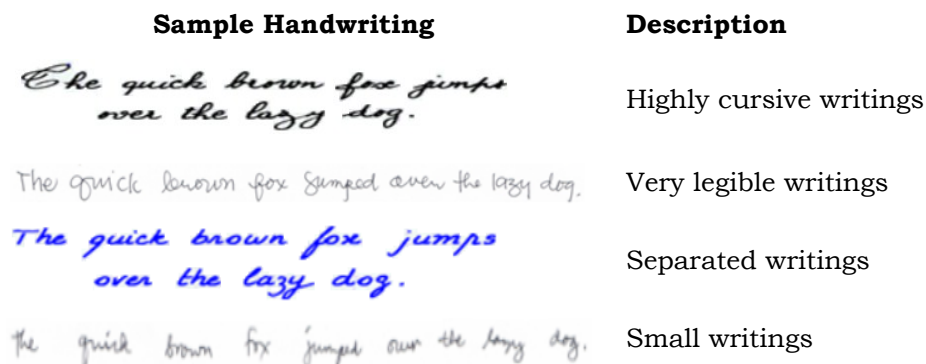 Sample Handwriting Description
The quick brown fox jumps
over the lazy dog.
Highly cursive writings
The quick brown fox jumped over the lazy dog.
Very legible writings
The quick brown fox jumps
over the lazy dog.
Separated writings
the quick brown fox jumped over the lazy dog.
Small writings